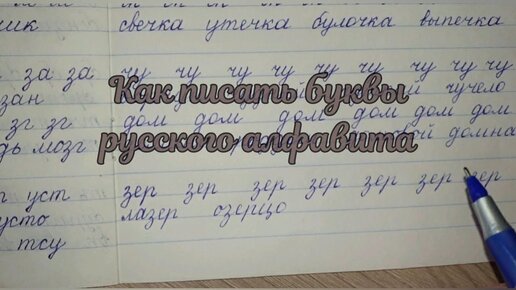 ик свечка утечка булочка выпечка
за за чу чу чу чу чу чу чу чу чу
зан чучело
Как писать буквы
зг зг дом дом дом дом дом дом
русского алфавита
мозг домна
уст зер зер зер зер зер зер зер
усто лазер озерцо
тсу